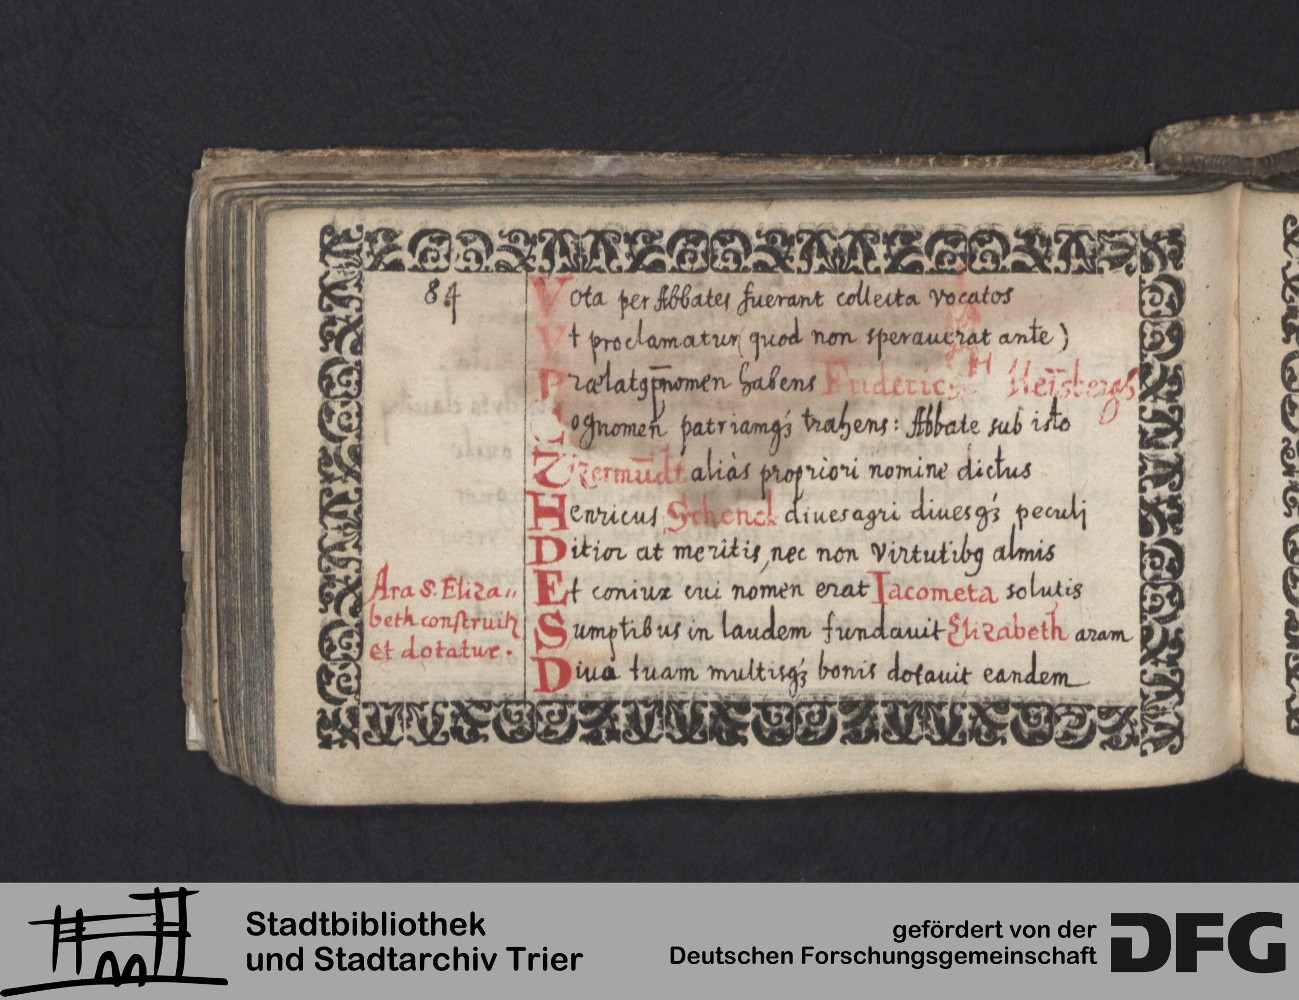 84
Vota per Abbates fuerant collecta vocatos
Vt proclamatur (quod non sperauerat ante)
Prælatq̄ p̄nomen habens Frideric9 H Nei̅sberg9
Cognomen patriamqȝ trahens: Abbate sub isto
Wermūdt aliàs propriori nomine dictus
Henricus Schenck diues agri diuesqȝ peculj
Ditior at meritis, nec non virtutibq almis
Et coniux cui nomen erat Iacometa solutis
Sumptibus in laudem fundauit Elizabeth aram
Diua tuam multisqȝ bonis dotauit eandem
Ara S. Eliza"
beth construitr
et dotatur.
Stadtbibliothek
und Stadtarchiv Trier
gefördert von der
Deutschen Forschungsgemeinschaft
DFG